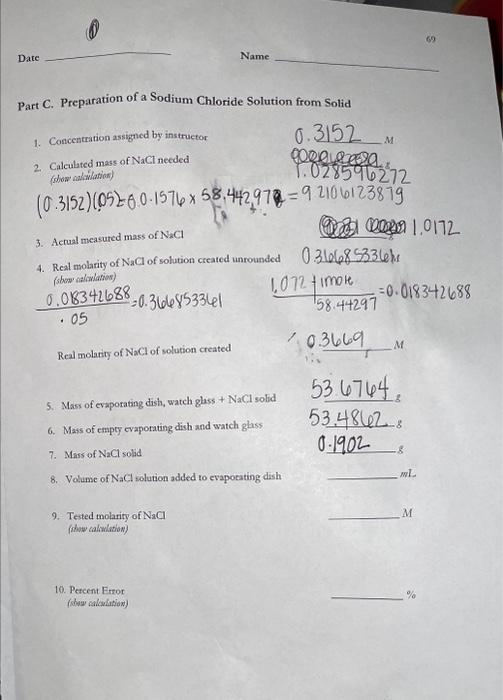 69
Date
Name
Part C. Preparation of a Sodium Chloride Solution from Solid
1. Concentration assigned by instructor 0.3152 M
2. Calculated mass of NaCl needed g
(show calculation) 1.028596272
(0.3152)(.05)=0.01576 x 58,442,97 = 92106123879
3. Actual measured mass of NaCl 1.0172
4. Real molarity of NaCl of solution created unrounded 0.366853361 M
(show calculation) 1.072 + 1 mole
58.44297 = 0.018342688
0.018342688 = 0.3668533361
.05
Real molarity of NaCl of solution created 0.3669 M
5. Mass of evaporating dish, watch glass + NaCl solid 53.6764 g
6. Mass of empty evaporating dish and watch glass 53.4862 g
7. Mass of NaCl solid 0.1902 g
8. Volume of NaCl solution added to evaporating dish mL
9. Tested molarity of NaCl M
(show calculation)
10. Percent Error %
(show calculation)